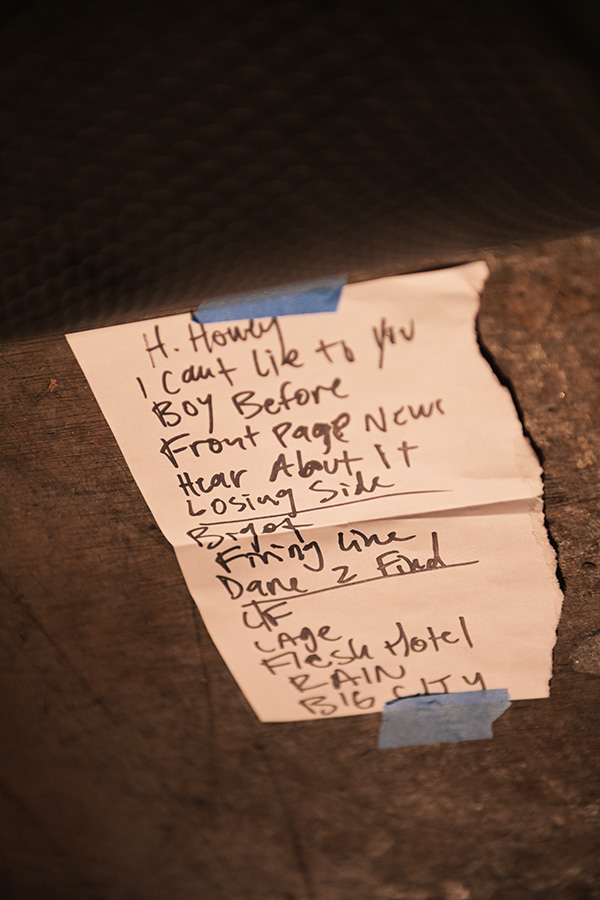 H. Howly
I Cant lie to you
Boy Before
Front Page News
Hear About It
Losing Side
Bigot
Firing line
Dare 2 Find
CAge
Flesh Hotel
RAIN
BIG CITY